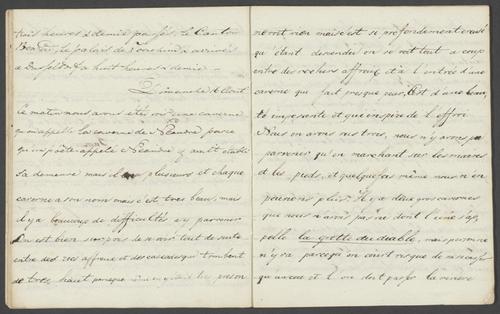 trois heures et demie passés, le Canton
Bendu, le palais de arrivés
a Dusseldorf a huit heures et demie.
Dimanche 6 Aout
Ce matin nous avons été voir une caverne
qu'on appelle la caverne de Néandre parce
qu'un poète appelé Néandre y avait établi
sa demeure mais il y a plusieurs et chaque
caverne a son nom mais c'est tres beau, mais
il y a beaucoup de difficultés a y parvenir
On est bien surpris de se voir tout de suite
entre des rocs affreux et des cascades qui tombent
de tres haut parceque les
ne voit rien mais c'est si profondement creusé
qu'étant descendu on se voit tout a coup
entre des rochers affreux et a l'entrée d'une
caverne qui fait presque peur. C'est d'une beauté
imposante et qui inspire de l'effroi.
Nous en avons vu trois, nous n'y avons pu
parvenir qu'en marchant sur les mains
et les pieds, et quelquefois même nous n'en
pouvions plus. Il y a deux cavernes
que nous n'avons pas vue dont l'une s'ap-
pelle la grotte du diable, mais personne
n'y va parcequ'on court risque de
qu'avec et l'on doit passer la rivière